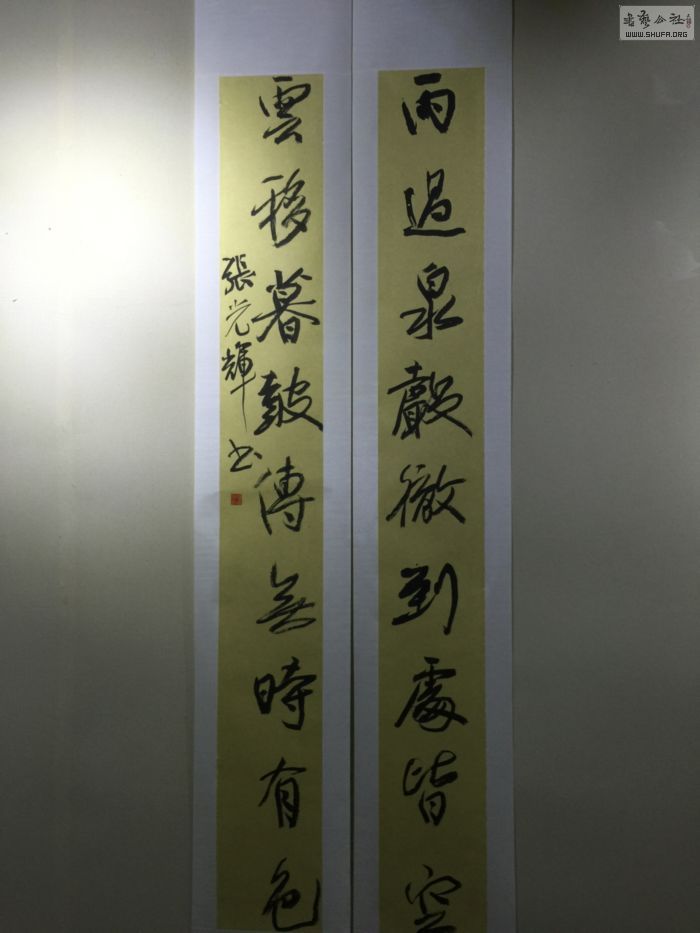 雨過泉聲徹到處皆空
雲移暮鼓傳無時有色
張光輝书
書藝公社
WWW.SHUFA.ORG